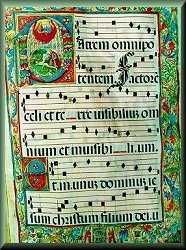 Patrem omnipo
tentem factore
celi et terre uisibilium om
nium et inuisibilium.
Et in unum dominum ie
sum christum filium dei u